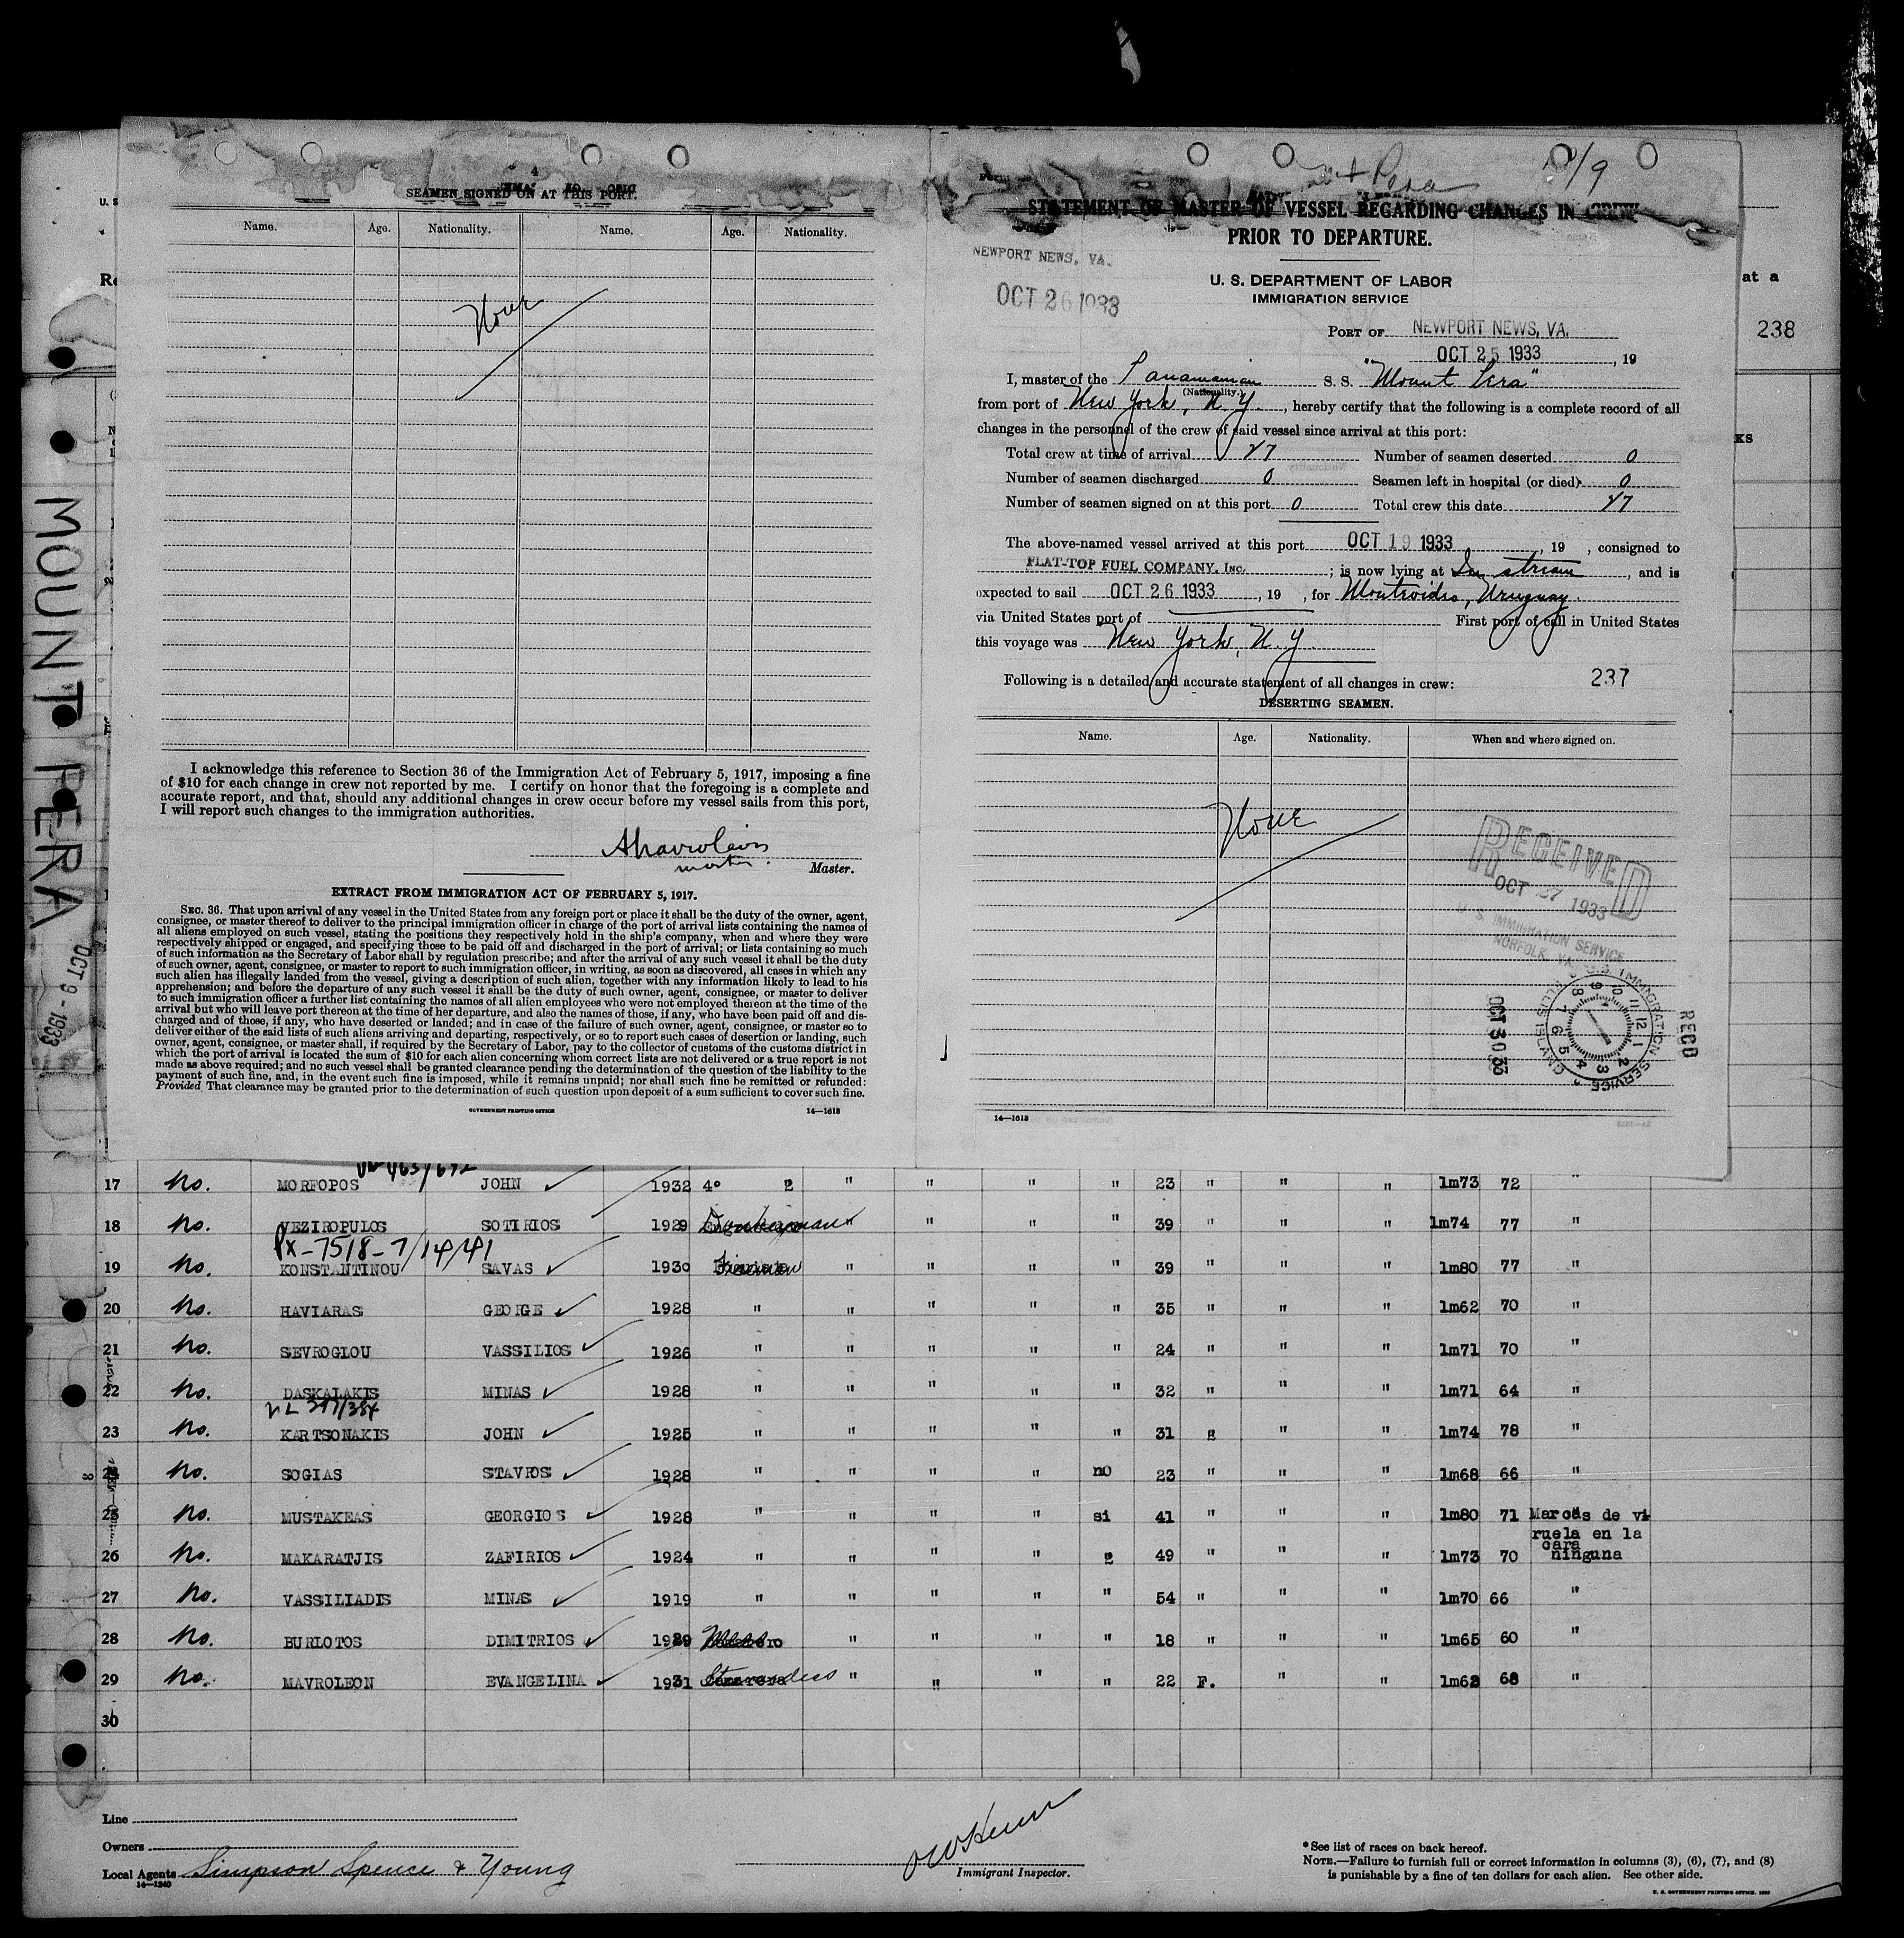 SEAMEN SIGNED ON AT THIS PORT.
Name. Age. Nationality. Name. Age. Nationality.
None
I acknowledge this reference to Section 36 of the Immigration Act of February 5, 1917, imposing a fine
of $10 for each change in crew not reported by me. I certify on honor that the foregoing is a complete and
accurate report, and that, should any additional changes in crew occur before my vessel sails from this port,
I will report such changes to the immigration authorities.
master.
Master.
EXTRACT FROM IMMIGRATION ACT OF FEBRUARY 5, 1917.
SEC. 36. That upon arrival of any vessel in the United States from any foreign port or place it shall be the duty of the owner, agent,
consignee, or master thereof to deliver to the principal immigration officer in charge of the port of arrival lists containing the names of
all aliens employed on such vessel, stating the positions they respectively hold in the ship's company, when and where they were
respectively shipped or engaged, and specifying those to be paid off and discharged in the port of arrival; or lists containing so much
of such information as the Secretary of Labor shall by regulation prescribe; and after the arrival of any such vessel it shall be the duty
of such owner, agent, consignee, or master to report to such immigration officer, in writing, as soon as discovered, all cases in which any
such alien has illegally landed from the vessel, giving a description of such alien, together with any information likely to lead to his
apprehension; and before the departure of any such vessel it shall be the duty of such owner, agent, consignee, or master to deliver
to such immigration officer a further list containing the names of all alien employees who were not employed thereon at the time of the
arrival but who will leave port thereon at the time of her departure, and also the names of those, if any, who have been paid off and dis-
charged and of those, if any, who have deserted or landed; and in case of the failure of such owner, agent, consignee, or master so to
deliver either of the said lists of such aliens arriving and departing, respectively, or so to report such cases of desertion or landing, such
owner, agent, consignee, or master shall, if required by the Secretary of Labor, pay to the collector of customs of the customs district in
which the port of arrival is located the sum of $10 for each alien concerning whom correct lists are not delivered or a true report is not
made as above required; and no such vessel shall be granted clearance pending the determination of the question of the liability to the
payment of such fine, and, in the event such fine is imposed, while it remains unpaid; nor shall such fine be remitted or refunded:
Provided That clearance may be granted prior to the determination of such question upon deposit of a sum sufficient to cover such fine.
GOVERNMENT PRINTING OFFICE 14—1613
STATEMENT OF MASTER OF VESSEL REGARDING CHANGES IN CREW
PRIOR TO DEPARTURE.
NEWPORT NEWS, VA.
OCT 26 1933
U. S. DEPARTMENT OF LABOR
IMMIGRATION SERVICE
PORT OF NEWPORT NEWS, VA.
OCT 25 1933, 19
I, master of the Panamanian S. S. "Mount Pera"
(Nationality.)
from port of New York, N.Y., hereby certify that the following is a complete record of all
changes in the personnel of the crew of said vessel since arrival at this port:
Total crew at time of arrival 27 Number of seamen deserted 0
Number of seamen discharged 0 Seamen left in hospital (or died) 0
Number of seamen signed on at this port 0 Total crew this date 27
The above-named vessel arrived at this port OCT 19 1933, 19 , consigned to
FLAT-TOP FUEL COMPANY, INC. ; is now lying at In stream, and is
expected to sail OCT 26 1933, 19 , for Montevideo, Uruguay.
via United States port of First port of call in United States
this voyage was New York, N.Y.
Following is a detailed and accurate statement of all changes in crew: 237
DESERTING SEAMEN.
Name. Age. Nationality. When and where signed on.
None
RECEIVED
OCT 27 1933
U. S. IMMIGRATION SERVICE
NORFOLK, VA.
OCT 30 33
RECD
14—1613
at a
238
KS
MOUNT PERA
OCT 9 - 1933
17 No. MORFOPOS JOHN 1932 4o " " " " 23 " " " 1m73 72 "
18 No. VEZIROPULOS SOTIRIOS 1929 Donkeyman " " " " 39 " " " 1m74 77 "
Px-7518-7/14/41
19 No. KONSTANTINOU SAVAS 1930 Fireman " " " " 39 " " " 1m80 77 "
20 No. HAVIARAS GEORGE 1928 " " " " " 35 " " " 1m62 70 "
21 No. SEVROGLOU VASSILIOS 1926 " " " " " 24 " " " 1m71 70 "
22 No. DASKALAKIS MINAS 1928 " " " " " 32 " " " 1m71 64 "
23 No. KARTSONAKIS JOHN 1925 " " " " " 31 " " " 1m74 78 "
24 No. SOGIAS STAVROS 1928 " " " " no 23 " " " 1m68 66 "
25 No. MUSTAKEAS GEORGIOS 1928 " " " " si 41 " " " 1m80 71 Marcas de vi
ruela en la
cara
26 No. MAKARATJIS ZAFIRIOS 1924 " " " " " 49 " " " 1m73 70 ninguna
27 No. VASSILIADIS MINAS 1919 " " " " " 54 " " " 1m70 66 "
28 No. BURLOTOS DIMITRIOS 1929 Mess " " " " 18 " " " 1m65 60 "
29 No. MAVROLEON EVANGELINA 1931 Stewardess " " " " 22 F. " " 1m62 68 "
30
Line
Owners
Local Agents Simpson Spence & Young
14—1240
Immigrant Inspector.
*See list of races on back hereof.
NOTE.—Failure to furnish full or correct information in columns (3), (6), (7), and (8)
is punishable by a fine of ten dollars for each alien. See other side.